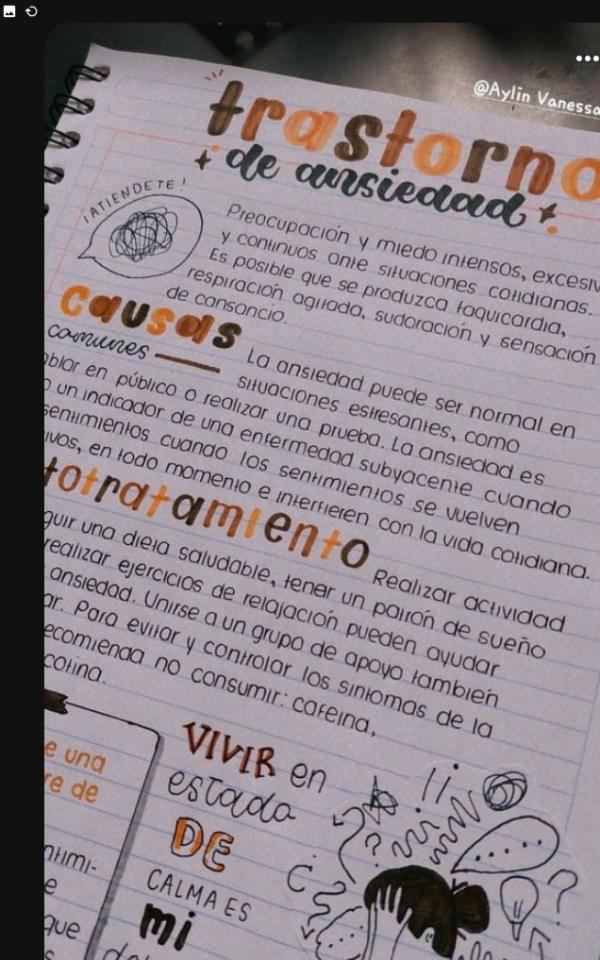 @Aylin Vanessa
trastorno
de ansiedad
¡ATIENDETE!
Preocupación y miedo intensos, excesiv
y continuos ante situaciones cotidianas.
Es posible que se produzca taquicardia,
respiración agitada, sudoración y sensación
de cansancio.
causas
comunes
La ansiedad puede ser normal en
situaciones estresantes, como
ablar en público o realizar una prueba. La ansiedad es
o un indicador de una enfermedad subyacente cuando
sentimientos cuando los sentimientos se vuelven
ivos, en todo momento e interfieren con la vida cotidiana.
totratamiento
Realizar actividad
guir una dieta saludable, tener un patrón de sueño
realizar ejercicios de relajación pueden ayudar
ansiedad. Unirse a un grupo de apoyo también
ar. Para evitar y controlar los síntomas de la
ecomienda no consumir: cafeína,
cotina.
e una
re de
ntimi-
e
que
VIVIR en
estado
DE
CALMA ES
mi